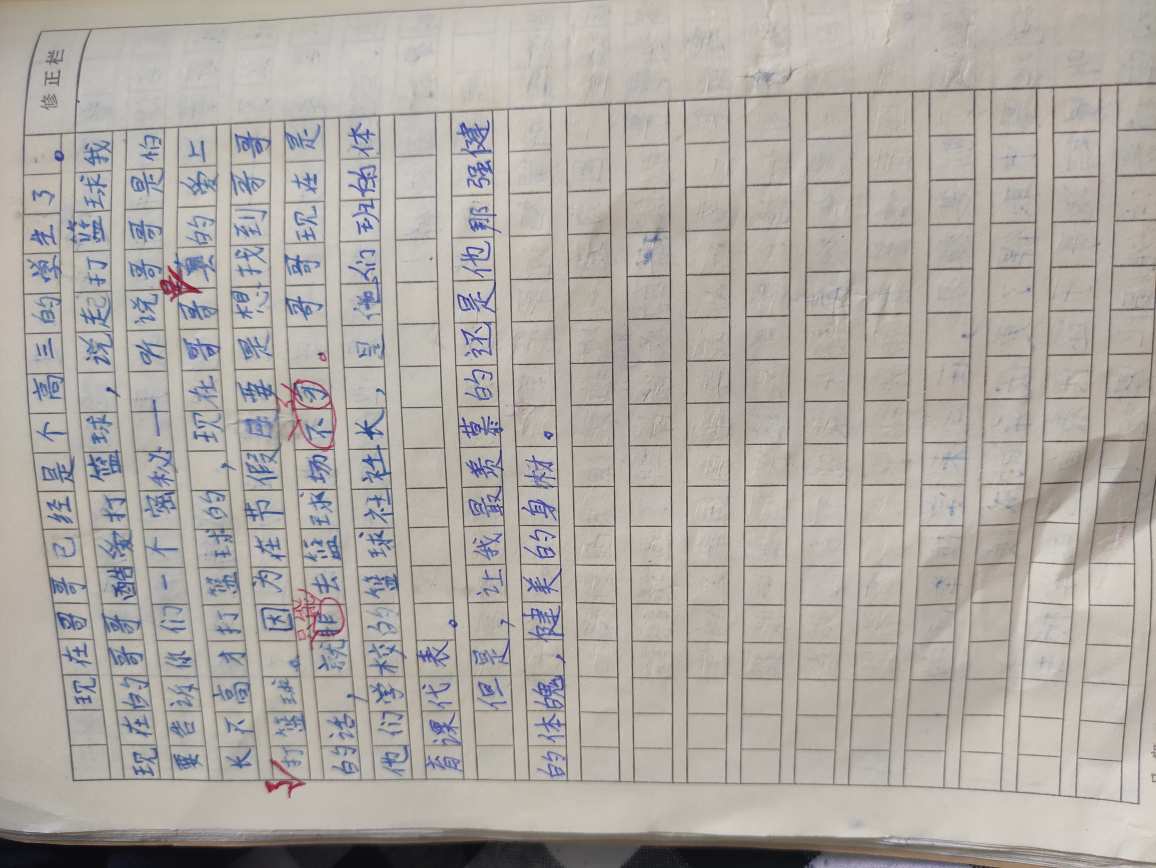 修正栏
现在哥哥已经是个高三的学生了。
现在的哥哥酷爱打篮球，说起打篮球我
要告诉你们一个密秘——听说哥哥是怕
长不高才打篮球的，现在哥哥是真的爱上
了打篮球。因为在节假日要是想找到哥哥
的话，就只能去篮球场。哥哥现在是
他们学校的篮球社社长，是他们班的体
育课代表。
但是，让我最羡慕的还是他那强健
的体魄，健美的身材。